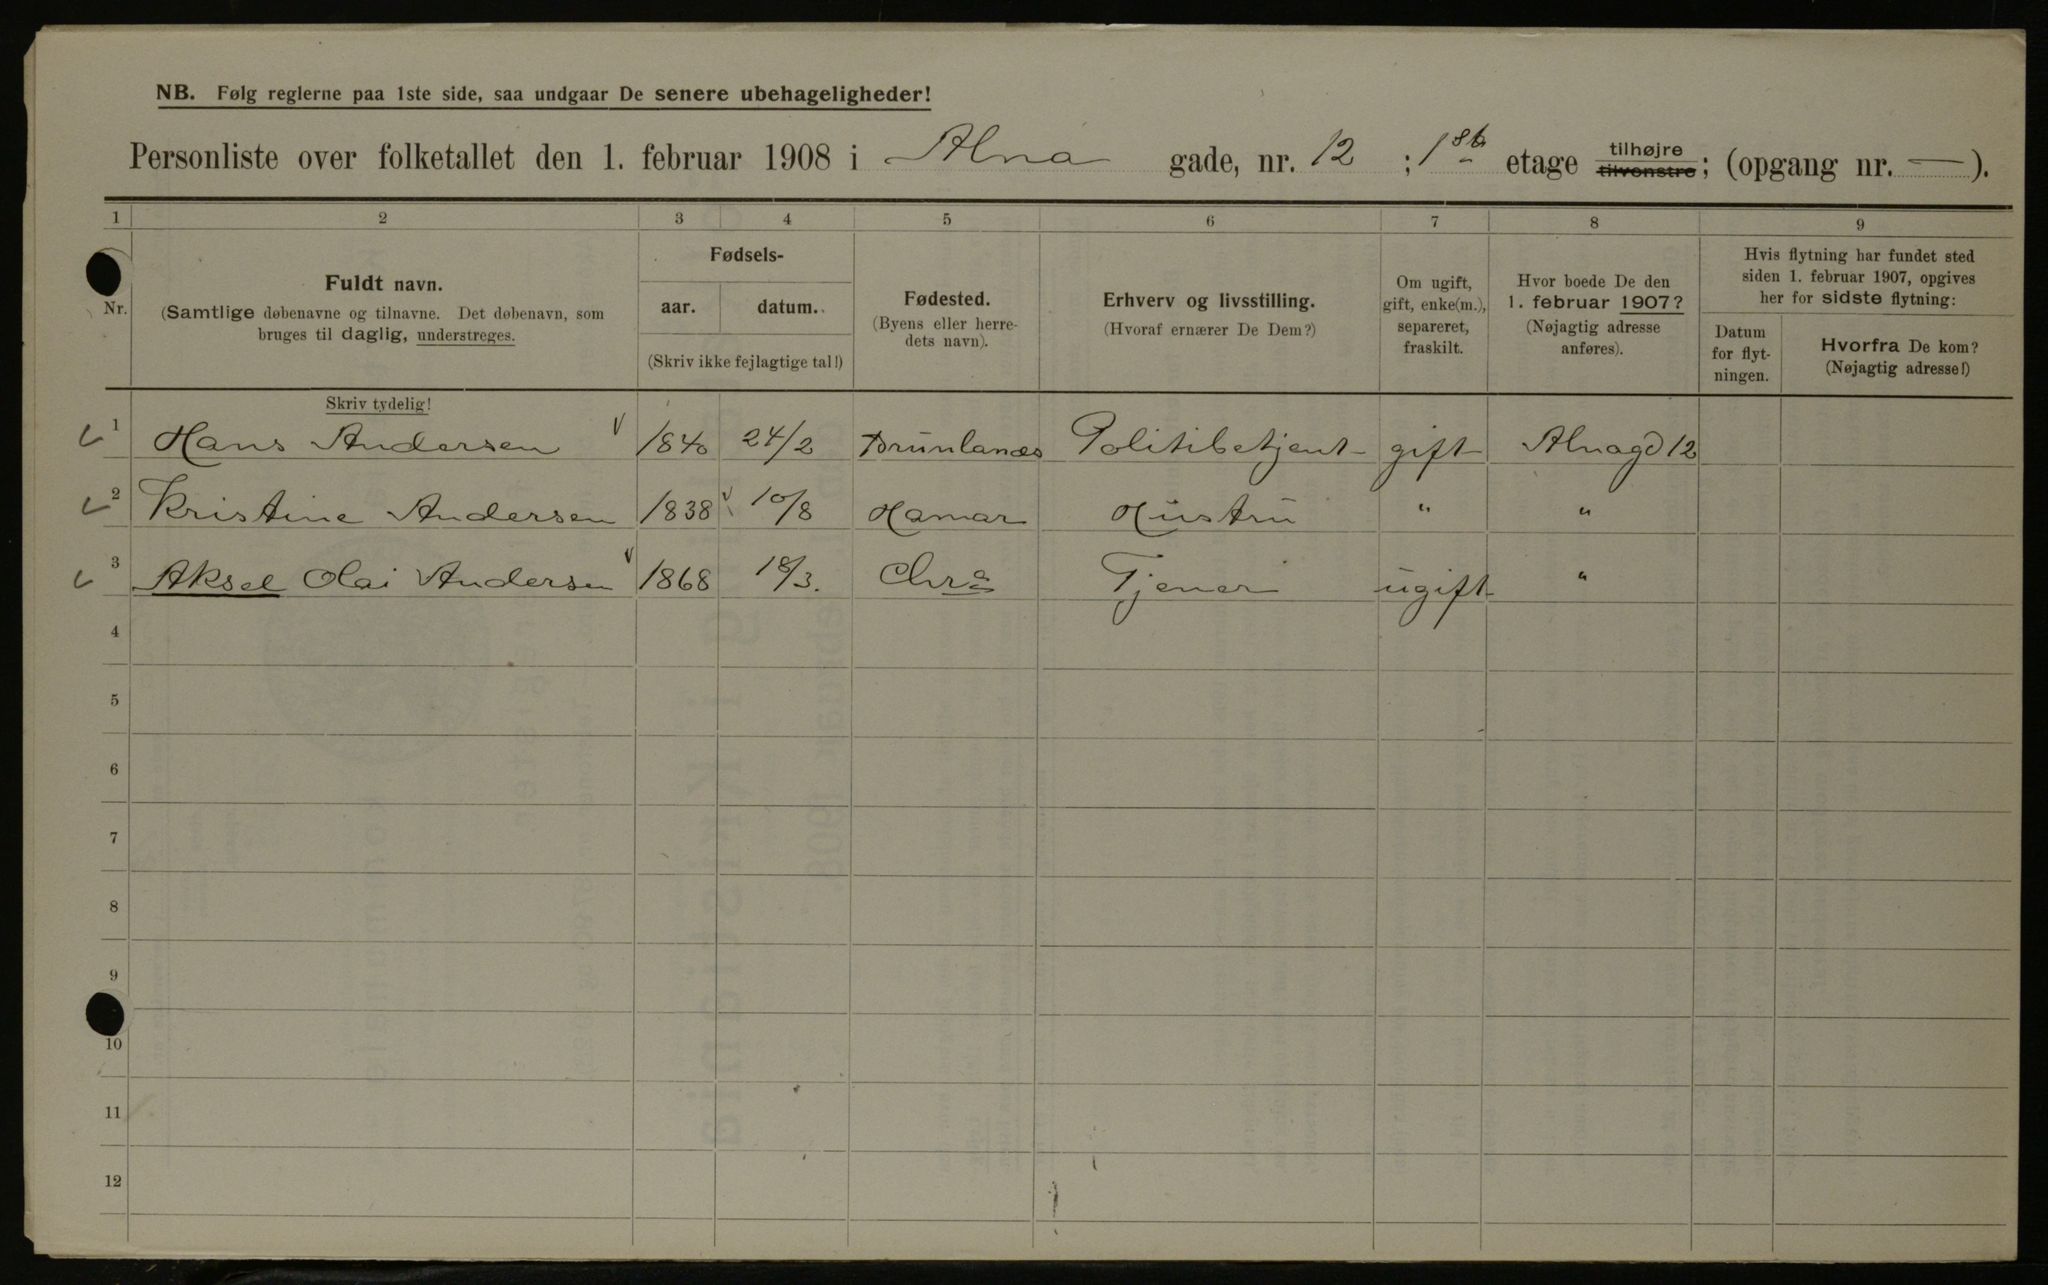 NB. Følg reglerne paa 1ste side, saa undgaar De senere ubehageligheder!
Personliste over folketallet den 1. februar 1908 i Alna gade, nr. 12 ; 1ste etage tilhøjre tilvenstre; (opgang nr. — ).
1 2 3 4 5 6 7 8 9
Nr.
Fuldt navn.
(Samtlige døbenavne og tilnavne. Det døbenavn, som
bruges til daglig, understreges.
Fødsels-
aar. datum.
(Skriv ikke fejlagtige tal!)
Fødested.
(Byens eller herre-
dets navn).
Erhverv og livsstilling.
(Hvoraf ernærer De Dem?)
Om ugift,
gift, enke(m.),
separeret,
fraskilt.
Hvor boede De den
1. februar 1907?
(Nøjagtig adresse
anføres).
Hvis flytning har fundet sted
siden 1. februar 1907, opgives
her for sidste flytning:
Datum
for flyt-
ningen.
Hvorfra De kom?
(Nøjagtig adresse!)
Skriv tydelig!
1 Hans Andersen 1840 24/2 Brunlanæs Politibetjent gift Alnagd 12
2 Kristine Andersen 1838 10/8 Hamar Hustru " "
3 Aksel Olai Andersen 1868 /3. Chra Tjener ugift "
4
5
6
7
8
9
10
11
12